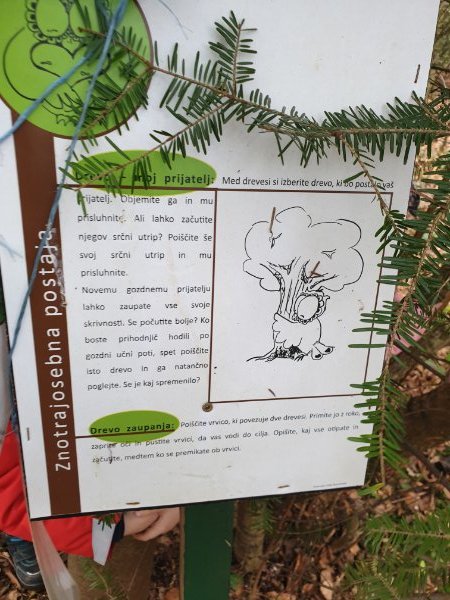 Znotrajosebna postaja
Drevo – moj prijatelj: Med drevesi si izberite drevo, ki bo postalo vaš
prijatelj. Objemite ga in mu
prisluhnite. Ali lahko začutite
njegov srčni utrip? Poiščite še
svoj srčni utrip in mu
prisluhnite.
Novemu gozdnemu prijatelju
lahko zaupate vse svoje
skrivnosti. Se počutite bolje? Ko
boste prihodnjič hodili po
gozdni učni poti, spet poiščite
isto drevo in ga natančno
poglejte. Se je kaj spremenilo?
Drevo zaupanja: Poiščite vrvico, ki povezuje dve drevesi. Primite jo z roko,
zaprite oči in pustite vrvici, da vas vodi do cilja. Opišite, kaj vse otipate in
začutite, medtem ko se premikate ob vrvici.